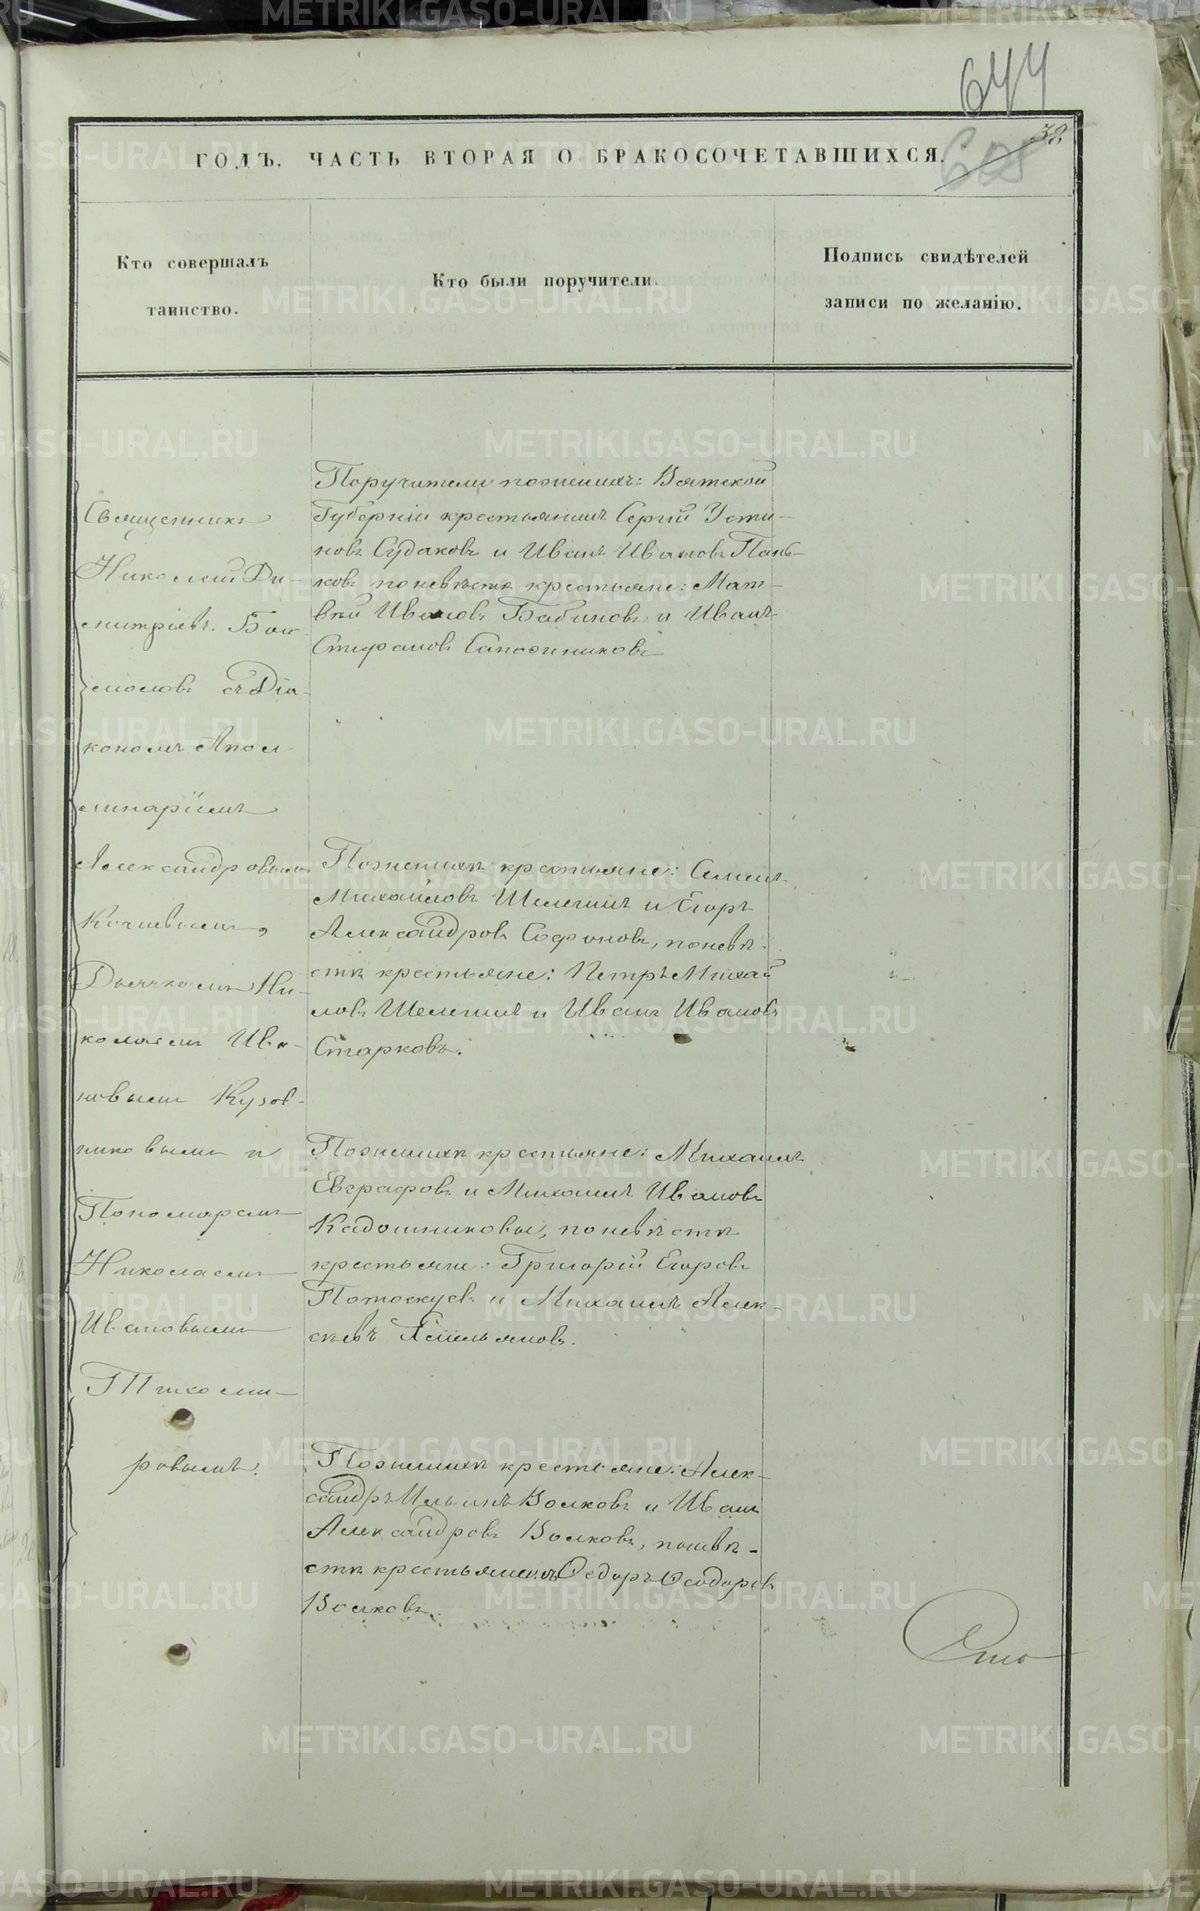 644
32.
608
ГОДЪ. ЧАСТЬ ВТОРАЯ О БРАКОСОЧЕТАВШИХСЯ.
Кто совершалъ
таинство.
Кто были поручители.
Подпись свидѣтелей
записи по желанію.
Священникъ
Николай Ди-
митріевъ Бого-
словъ съ Діа-
кономъ Апол
линаріемъ
Александровымъ
Дьячкомъ Ни-
колаемъ Ива-
новымъ Кузов-
никовымъ и
Пономаремъ
Николаемъ
Ивановымъ
Тихоми-
ровымъ.
Поручители по женихѣ: Вятской
Губерніи крестьянинъ Сергій Усти-
новъ Судаковъ и Иванъ Ивановъ Пань-
ковъ по невѣстѣ крестьяне: Мат-
вѣй Ивановъ Бабиновъ и Иванъ
Стефановъ Сапожниковъ
По женихѣ крестьяне: Семенъ
Михайловъ Шелегинъ и Егоръ
Александровъ Софоновъ, по невѣ-
стѣ крестьяне: Петръ Михай
ловъ Шелегинъ и Иванъ Ивановъ
Старковъ.
По женихѣ крестьяне: Михаилъ
Евграфовъ и Михаилъ Ивановъ
Кадошниковы, по невѣстѣ
крестьяне: Григорій Егоровъ
Потоскуевъ и Михаилъ Алек-
сѣевъ Емельяновъ.
По женихѣ крестьяне: Алек-
сандръ Ильинъ Волковъ и Иванъ
Александровъ Волковъ, по невѣ-
стѣ крестьянинъ Ѳедоръ Ѳеодоровъ
Волковъ.
METRIKI.GASO-URAL.RU